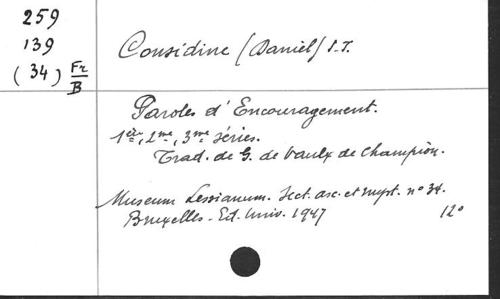 259
139
(34) Fr/B
Considine (Daniel) S.J.
Paroles d'Encouragement.
1ère, 2me, 3me séries.
Trad. de G. de Vaulx de Champion.
Museum Lessianum. Sect. asc. et myst. n° 34.
Bruxelles. Ed. Univ. 1947 12°